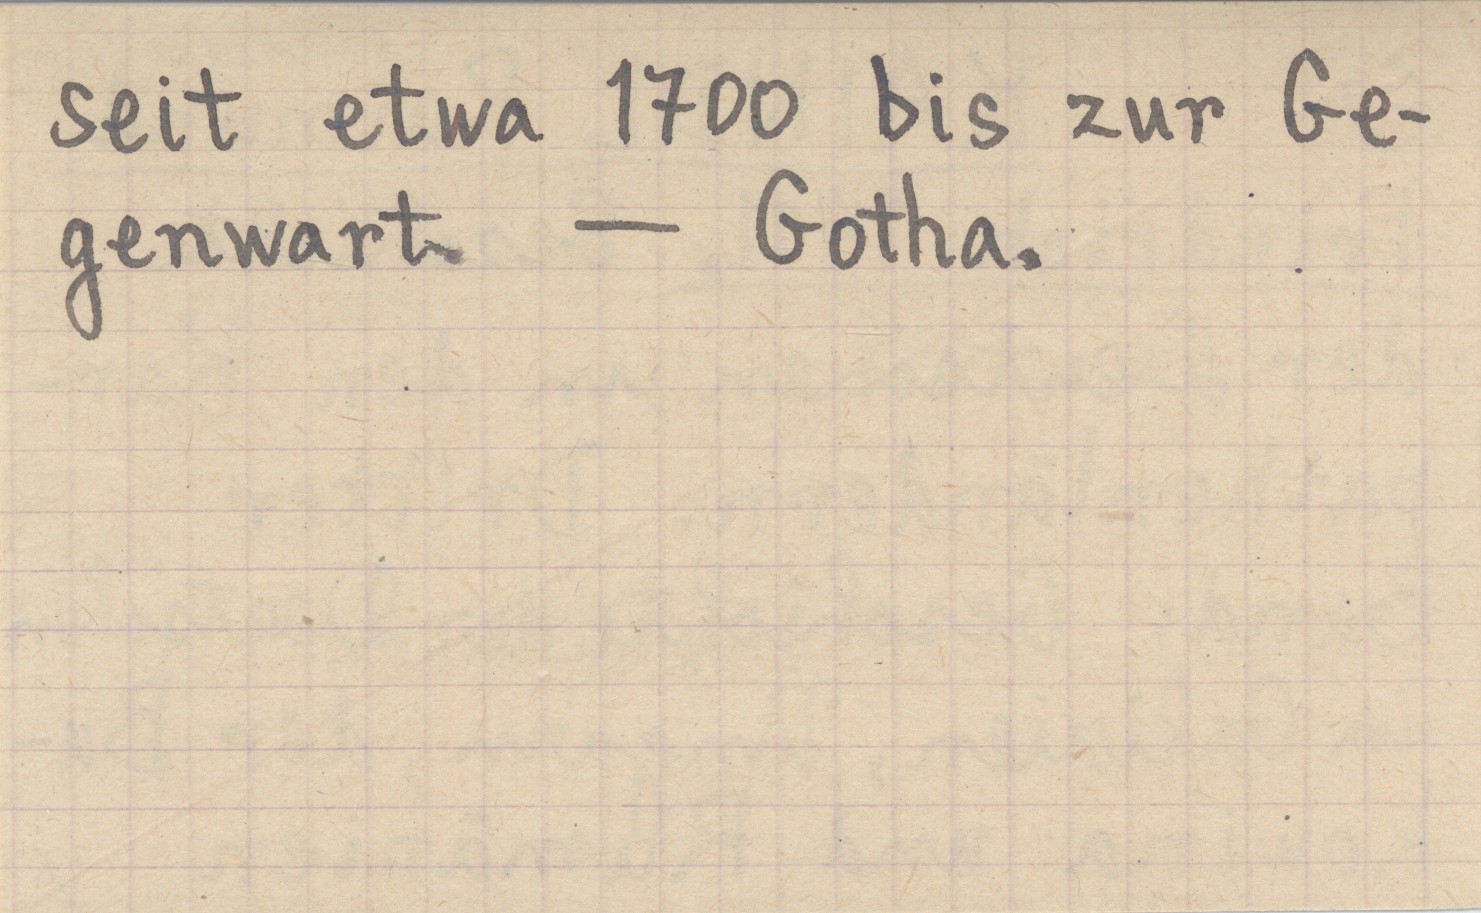 seit etwa 1700 bis zur Ge-
genwart. — Gotha.